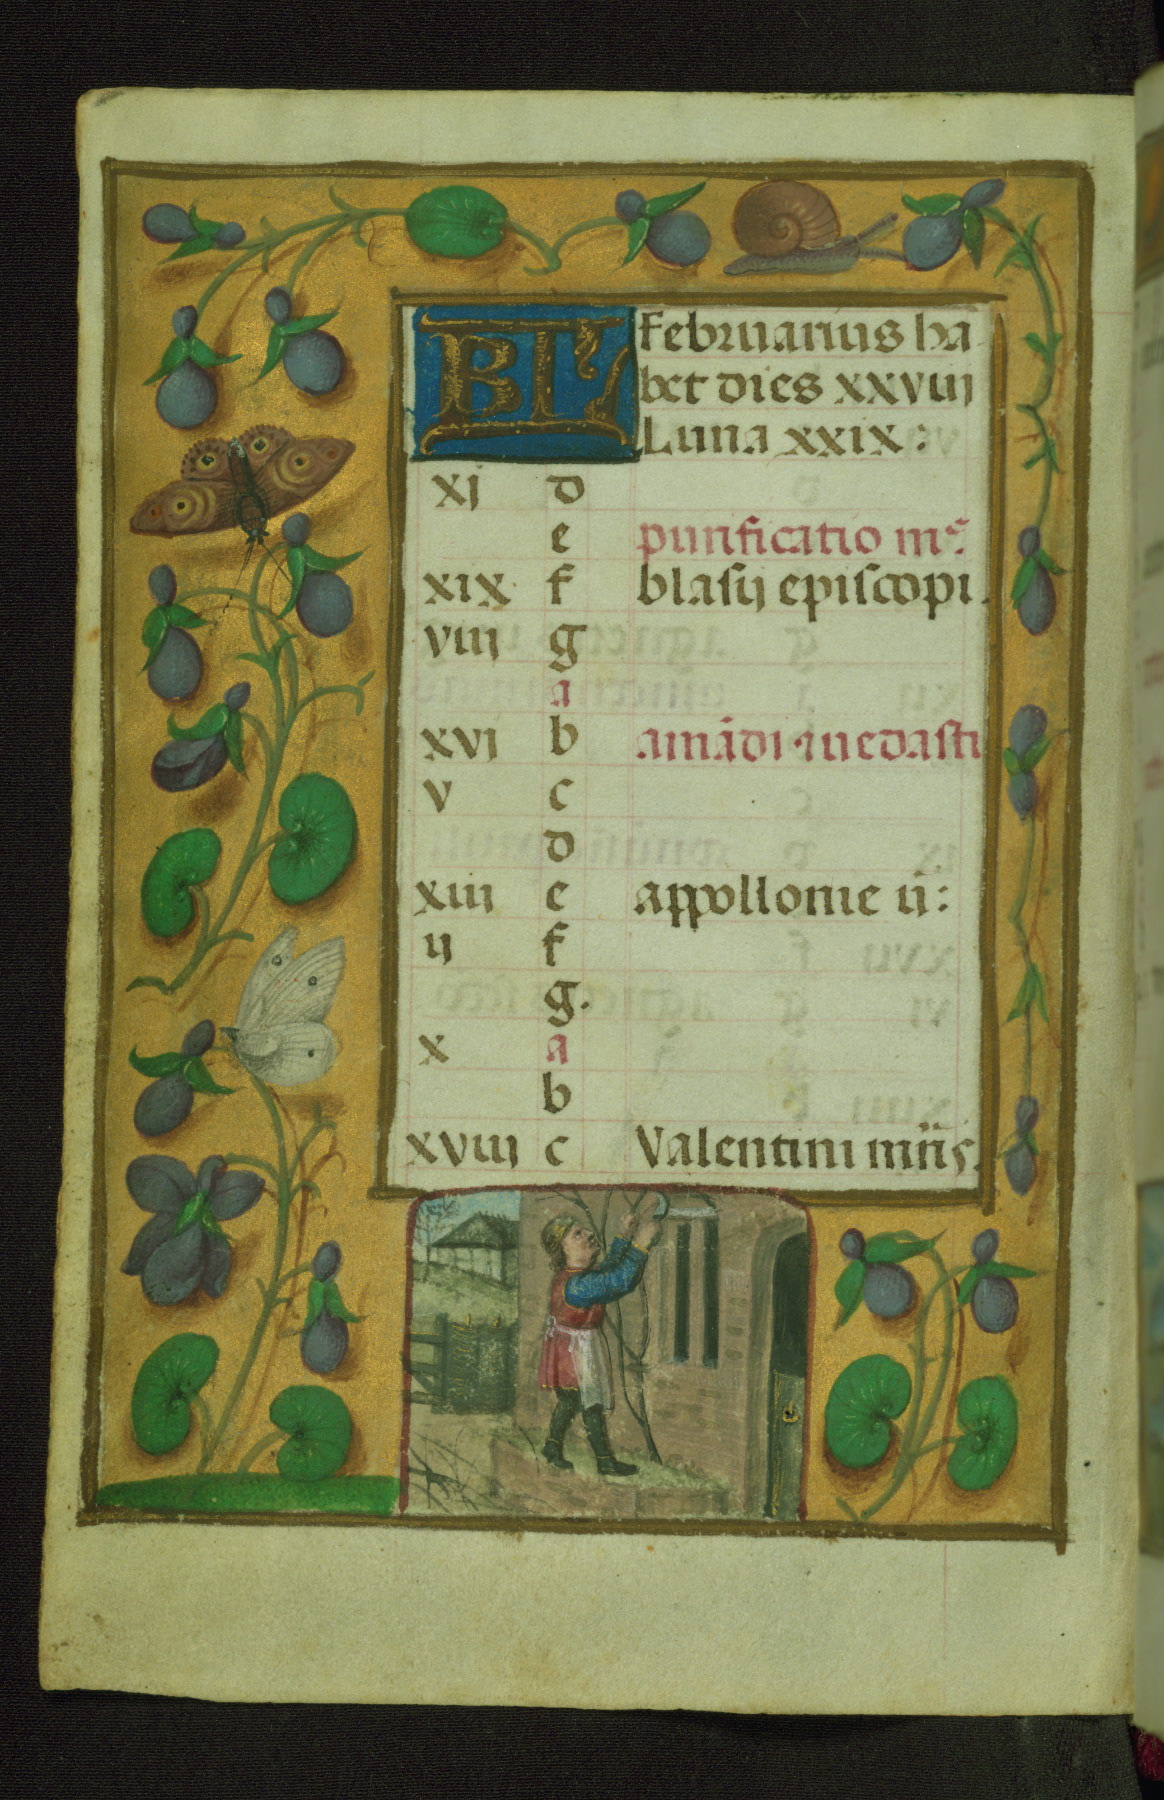 KL
Februarius ha
bet dies xxviij
Luna xxix:
xj d
e purificatio mͬ:
xix f blasij episcopi.
viij g
a
xvj b amādi ⁊ uedasti
v c
d
xiij e appollonie ū:
ij f
g.
x a
b
xviij c Valentini mr̄is.